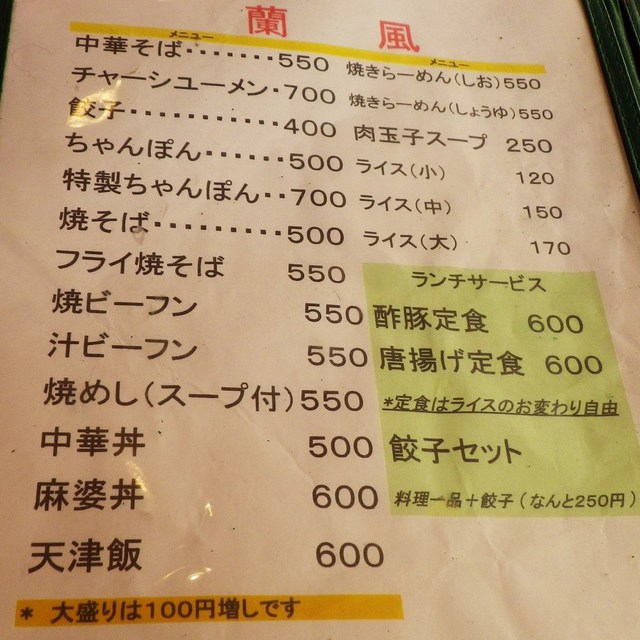 蘭風
メニュー
中華そば・・・・・・・550
チャーシューメン・700
餃子・・・・・・・・・・・400
ちゃんぽん・・・・・・500
特製ちゃんぽん・・700
焼そば・・・・・・・・・500
フライ焼そば 550
焼ビーフン 550
汁ビーフン 550
焼めし(スープ付)550
中華丼 500
麻婆丼 600
天津飯 600
* 大盛りは100円増しです
メニュー
焼きらーめん(しお)550
焼きらーめん(しょうゆ)550
肉玉子スープ 250
ライス(小) 120
ライス(中) 150
ライス(大) 170
ランチサービス
酢豚定食 600
唐揚げ定食 600
*定食はライスのお変わり自由
餃子セット
料理一品+餃子(なんと250円)